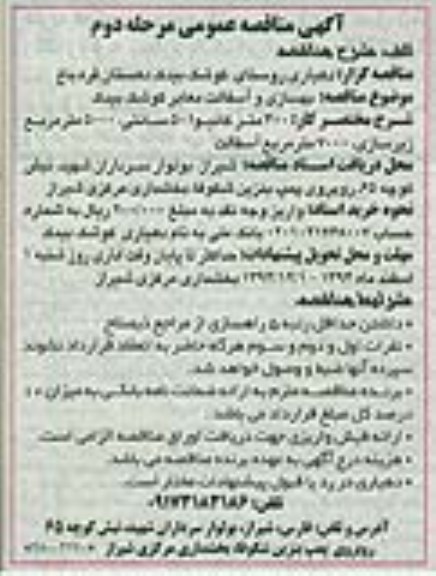 آگهی مناقصه عمومی مرحله دوم
الف: شرح مناقصه
مناقصه گزار: دهیاری روستای کوشک بیدک دهستان قره باغ
موضوع مناقصه: بهسازی و آسفالت معابر کوشک بیدک
شرح مختصر کار: ۳۰۰ متر کانیوا ۵۰ سانتی، ۵۰۰۰ مترمربع
زیرسازی، ۲۰۰۰ مترمربع آسفالت
محل دریافت اسناد مناقصه: شیراز بولوار سرداران شهید، نبش
کوچه ۶۵ روبروی پمپ بنزین شکوفا، بخشداری مرکزی شیراز
نحوه خرید اسناد: واریز وجه نقد به مبلغ ۲۰۰/۰۰۰ ریال به شماره
حساب بانک ملی به نام دهیاری کوشک بیدک
مهلت و محل تحویل پیشنهادات: حداکثر تا پایان وقت اداری روز شنبه ۱
اسفند ماه بخشداری مرکزی شیراز
شرایط مناقصه:
• داشتن حداقل رتبه ۵ راهسازی از مراجع ذیصلاح
• نفرات اول و دوم و سوم هرگاه حاضر به انعقاد قرارداد نشوند
سپرده آنها ضبط و وصول خواهد شد.
• برنده مناقصه ملزم به ارائه ضمانت نامه بانکی به میزان ۱۰
درصد کل مبلغ قرارداد می باشد.
• ارائه فیش واریزی جهت دریافت اوراق مناقصه الزامی است.
• هزینه درج آگهی به عهده برنده مناقصه می باشد.
• دهیاری در رد یا قبول پیشنهادات مختار است.
تلفن: ۰۹۱۷۳۱۸۳۱۸۶
آدرس و تلفن: فارس، شیراز، بولوار سرداران شهید، نبش کوچه ۶۵
روبروی پمپ بنزین شکوفا، بخشداری مرکزی شیراز